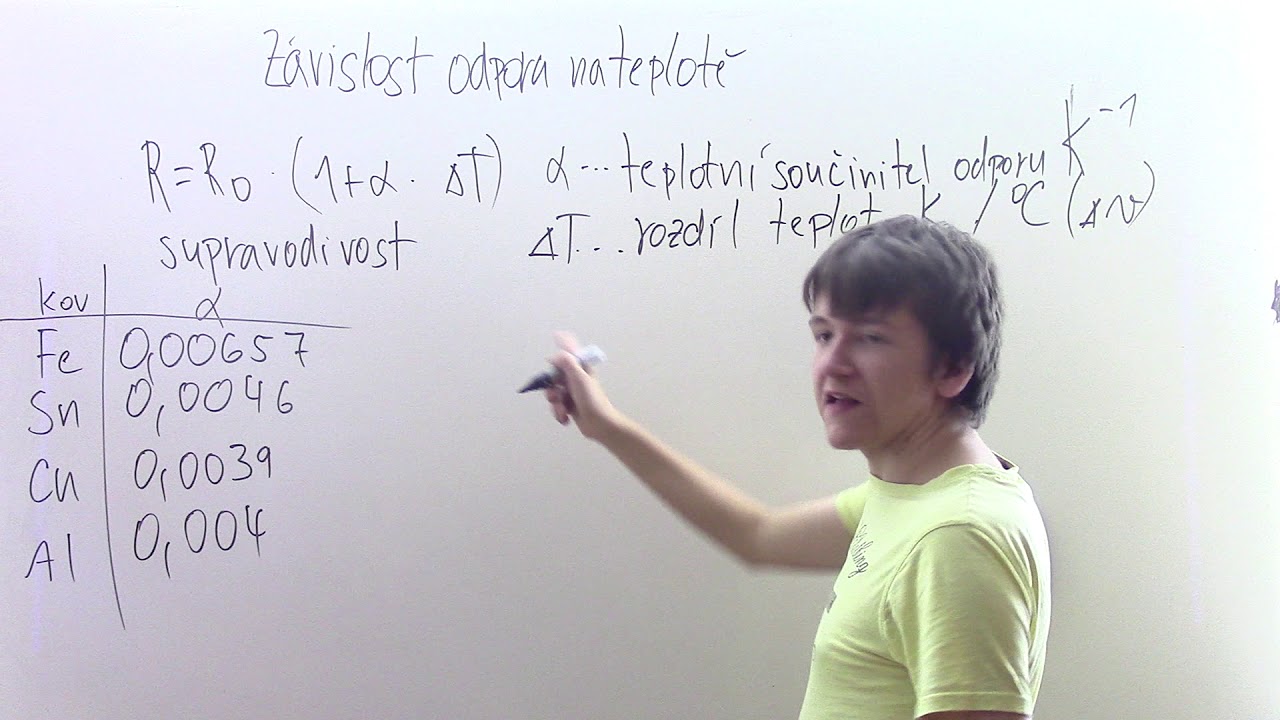 Závislost odporu na teplotě
R=R0·(1+α·ΔT) α...teplotní součinitel odporu K⁻¹
supravodivost ΔT...rozdíl teplot K / °C (Δϑ)
kov α
Fe 0,00657
Sn 0,0046
Cu 0,0039
Al 0,004